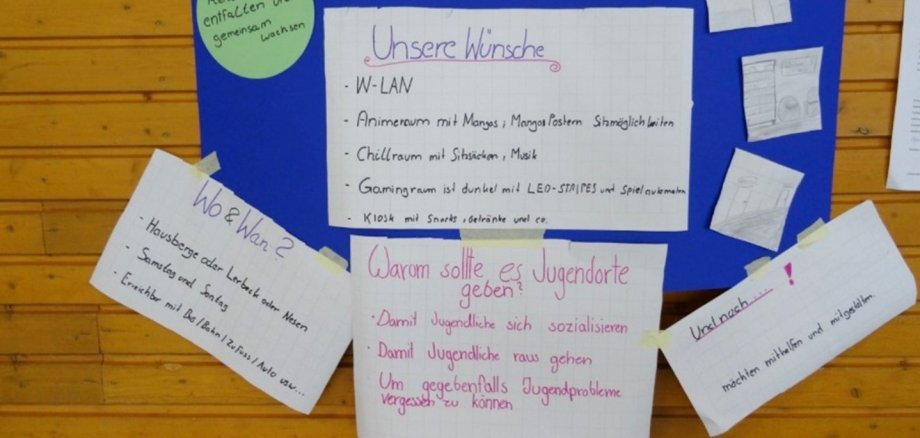 entfalten und
gemeinsam
wachsen
Unsere Wünsche
- W-LAN
- Animeraum mit Mangas, MangasPostern Sitzmöglichkeiten
- Chillraum mit Sitsäcken, Musik
- Gamingraum ist dunkel mit LED-STRIPES und Spielautomaten
- Kiosk mit Snacks, Getränke und co.
Wo & Wan?
- Hausberge oder Lerbeck oder Neesen
- Samstag und Sontag
- Erreichbar mit Bus/Bahn/Zu Fuss/Auto usw...
Warum sollte es Jugendorte
geben?
· Damit Jugendliche sich sozialisieren
· Damit Jugendliche raus gehen
Um gegebenfalls Jugendprobleme
vergessen zu können
Und noch.... !
möchten mithelfen und mitgestalten.